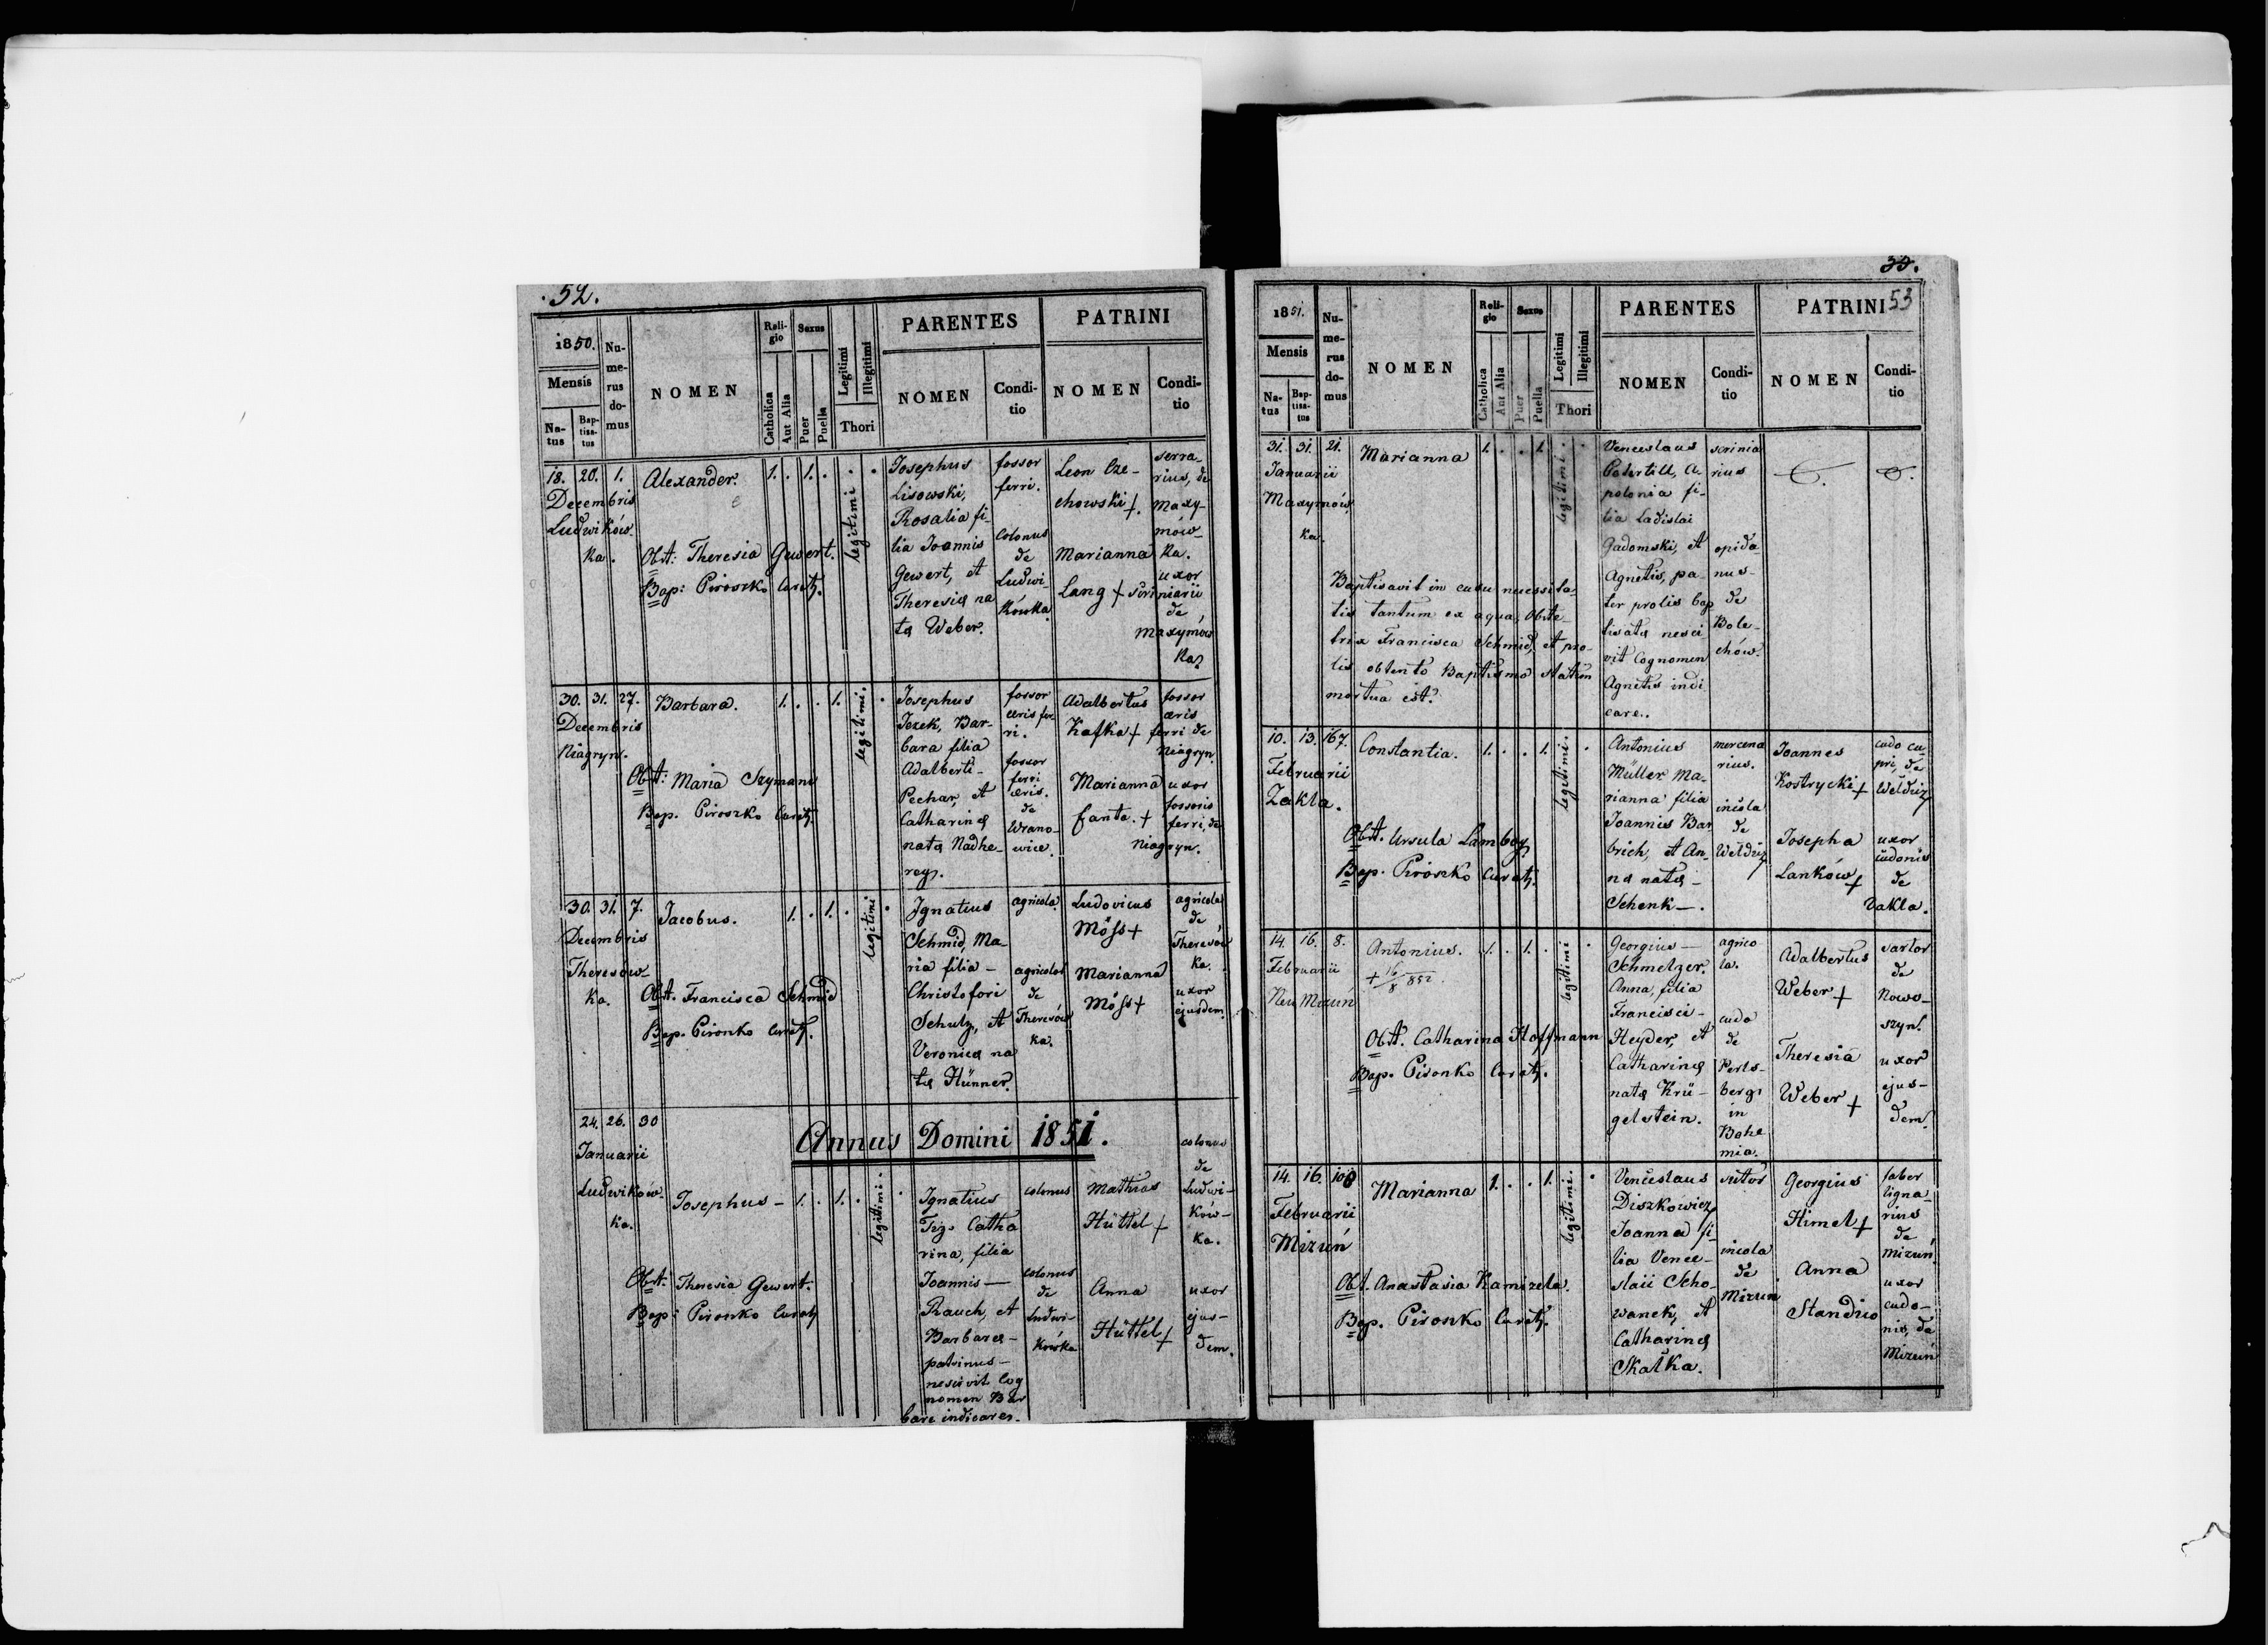 52.
1850.
Mensis
Na-
tus
Bap-
tisa-
tus
Nu-
me-
rus
do-
mus
NOMEN
Reli-
gio
Catholica
Aut Alia
Sexus
Puer
Puella
Legitimi
Illegitimi
Thori
PARENTES
NOMEN
Condi-
tio
PATRINI
NOMEN
Condi-
tio
18. 20. 1.
Decembris
Ludwików-
ka.
Alexander.
1. . 1. . . .
legitimi
Obst: Theresia Gewert.
Bap: Piroszko Curatg.
Josephus
Lisowski,
Rosalia fi-
lia Joannis
Gewert, et
Theresia na
ta Weber.
fossor
ferri.
colonus
de
Ludwi-
kówka
Leon Cze-
chowski +.
Marianna
Lang +
serra-
rius, de
Maxy-
mów-
ka.
uxor
scriniarii
de
Maxymów
ka.
30. 31. 27.
Decembris
Niagryn.
Barbara.
1. . . 1. .
legitimi.
Obst: Maria Szymans
Bap. Piroszko Curatg.
Josephus
Jezek, Bar-
bara filia
Adalberti-
Pechar, et
Catharina
nata Nadhe-
rey.
fossor
æris fer-
ri.
fossor
ferri
æris.
de
Wrano-
wice.
Adalbertus
Kafka +
Marianna
Fanta. +
fossor
æris
ferri de
Niagryn.
uxor
fossoris
ferri, de
Niagryn.
30. 31. 7.
Decembris
Theresów-
ka.
Jacobus.
1. . 1. . .
legitimi
Obst. Francisca Schmid
Bap. Pironko Curatg.
Ignatius
Schmid, Ma-
ria filia-
Christofori
Schulz, et
Veronica na
ta Hünner.
agricola.
agricola
de
Theresów
ka.
Ludovicus
Möss +
Marianna
Möss +
agricola
de
Theresów
ka.
uxor
ejusdem.
Annus Domini 1851.
24. 26. 30
Januarii
Ludwików-
ka.
Josephus-
1. . 1. . .
legitimi.
Obst: Theresia Gewert.
Bap: Pironko Curatg
Ignatius
Catha
rina, filia
Joannis-
Rauch, et
Barbara-
patrinus-
nescivit Cog
nomen Bar
bare indicare.
colonus
colonus
de
Ludwi-
kówka
Mathias
Hüttel +
Anna
Hüttel +
colonus
de
Ludwi-
ków-
ka.
uxor
ejus-
dem.
33.
53
1851.
Mensis
Na-
tus
Bap-
tisa-
tus
Nu-
me-
rus
do-
mus
NOMEN
Reli-
gio
Catholica
Aut Alia
Sexus
Puer
Puella
Legitimi
Illegitimi
Thori
PARENTES
NOMEN
Condi-
tio
PATRINI
NOMEN
Condi-
tio
31. 31. 21.
Januarii
Maxymów
ka.
Marianna
1. . . 1. . .
legitimi.
Baptisavit in casu necessita-
tis tantum ex aqua, Obste-
trix Francisca Schmid, et pro-
lis obtento Baptismo statim
mortua est.
Venceslaus
A-
polonia fi-
lia Ladislai
Gadomski, et
Agnetis, pa-
ter prolis bap
tisata nesci
vit Cognomen
Agnetis indi
care..
scrinia
rius
opida-
nus-
de
Bole-
chów.
10. 13. 167.
Februarii
Zakla.
Constantia.
1. . . 1. .
legitimi.
Obst. Ursula Lamboy
Bap. Piroszko Curatg.
Antonius
Müller Ma-
rianna filia
Joannis Bar
brich, et An-
na nata-
Schenk-.
mercena
rius.
incola
de
Weldziz
Joannes
Kostrycki +
Josepha
Lanków +
cudo cu-
pri, de
Weldziz
uxor
cudonis
de
Zakla.
14. 16. 8.
Februarii
Neu Mizuń
Antonius.
+ 16/8 852.
1. . 1. . .
legitimi
Obst. Catharina Hoffmann
Bap. Pironko Curatg.
Georgius-
Schmelzer.
Anna, filia
Francisci-
Heyder, et
Catharina
nata Krü-
gelstein.
agrico
la.
cudo
de
Perls-
berg
in
Bohe
mia.
Adalbertus
Weber +
Theresia
Weber +
sartor
de
Nowo-
szyn.
uxor
ejus-
dem.
14. 16. 108
Februarii
Mizuń
Marianna
1. . . 1. .
legitimi.
Obst. Anastasia Kamizela.
Bap. Pironko Curatg.
Venceslaus
Diszkowicz
Joanna fi-
lia Vence-
slaii Scho-
wanek, et
Catharina
Skalka.
sutor
incola
de
Mizuń
Georgius
Himel +
Anna
Standio
faber
ligna-
rius
de
Mizuń.
uxor
cudo-
nis, de
Mizuń